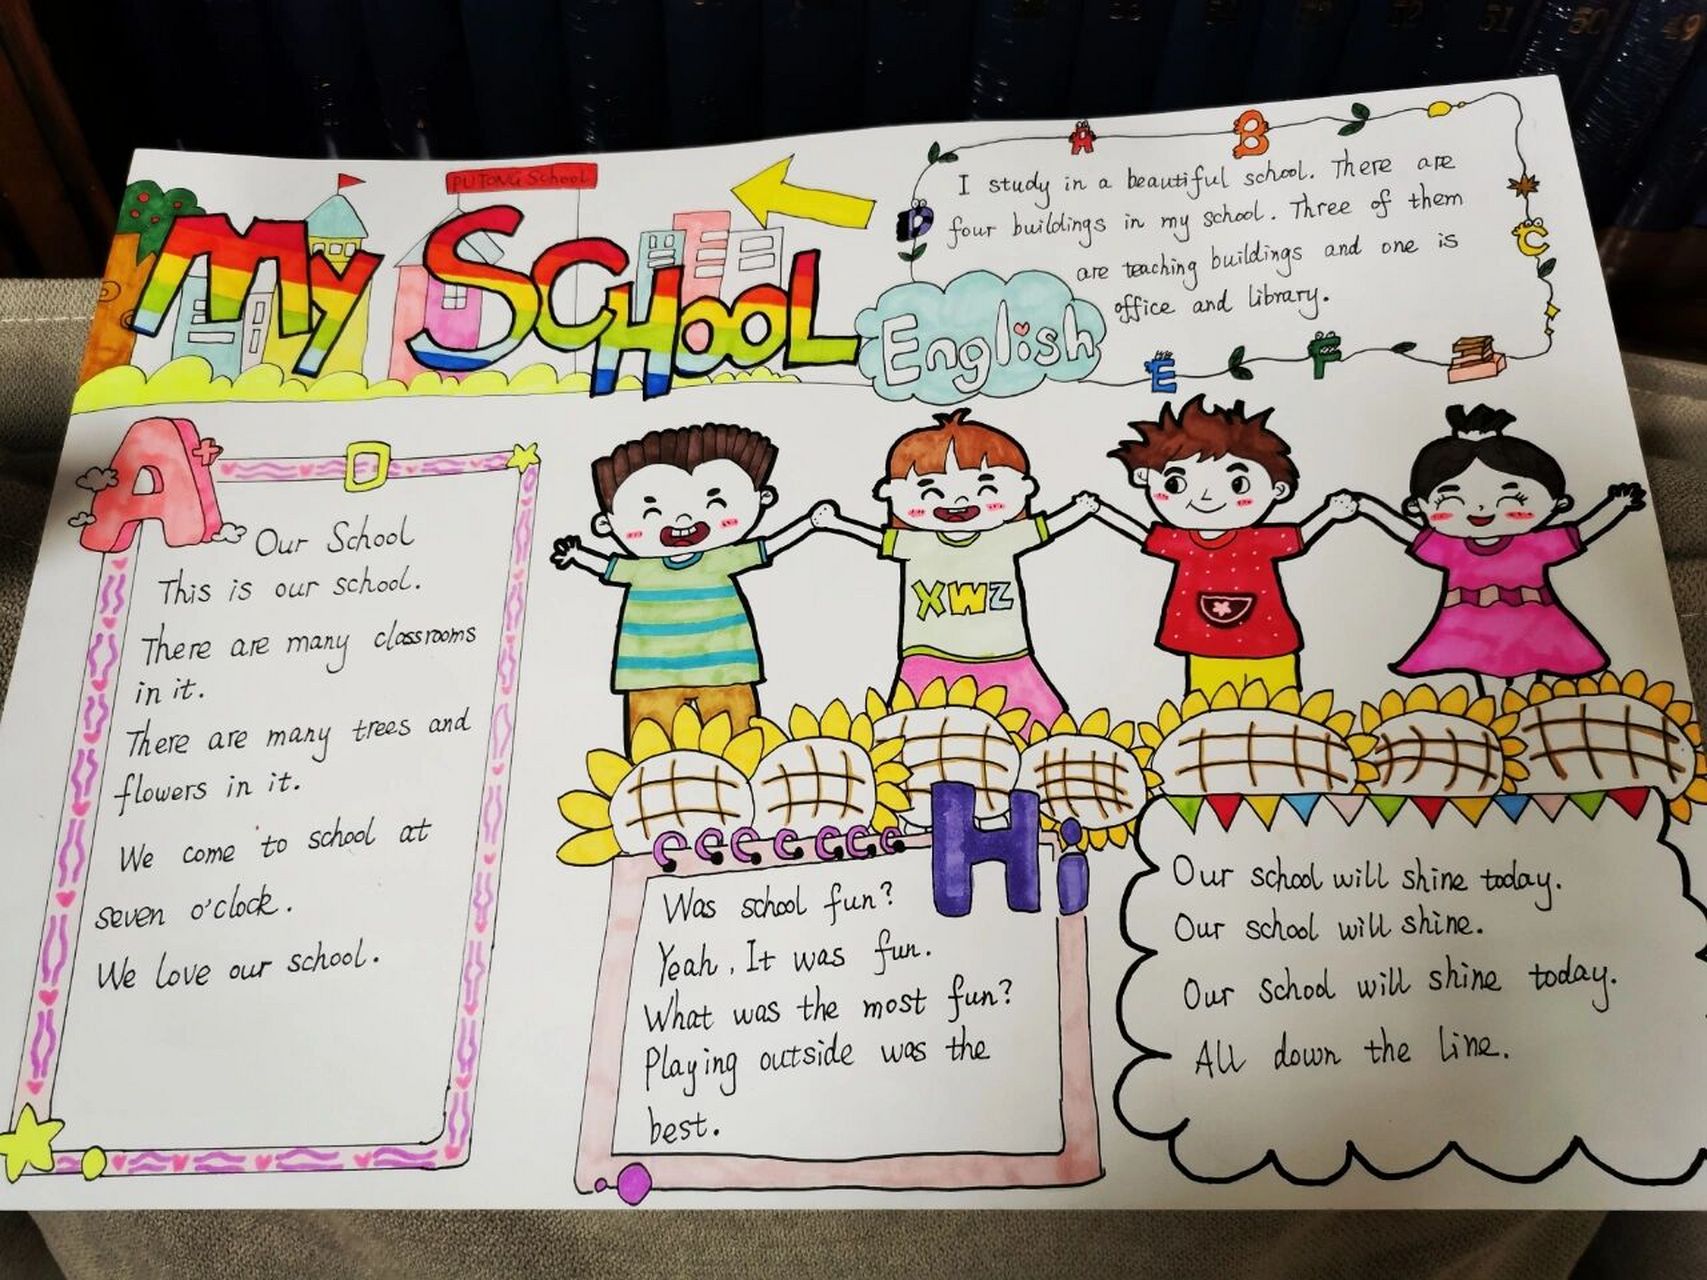 PUTONG School
My School
English
I study in a beautiful school. There are
four buildings in my school. Three of them
are teaching buildings and one is
office and library.
A
B
C
D
E
F
A
Our School
This is our school.
There are many classrooms
in it.
There are many trees and
flowers in it.
We come to school at
seven o'clock.
We love our school.
XWZ
Hi
Was school fun?
Yeah, It was fun.
What was the most fun?
Playing outside was the
best.
Our school will shine today.
Our school will shine.
Our School will shine today.
All down the line.
51
50
49